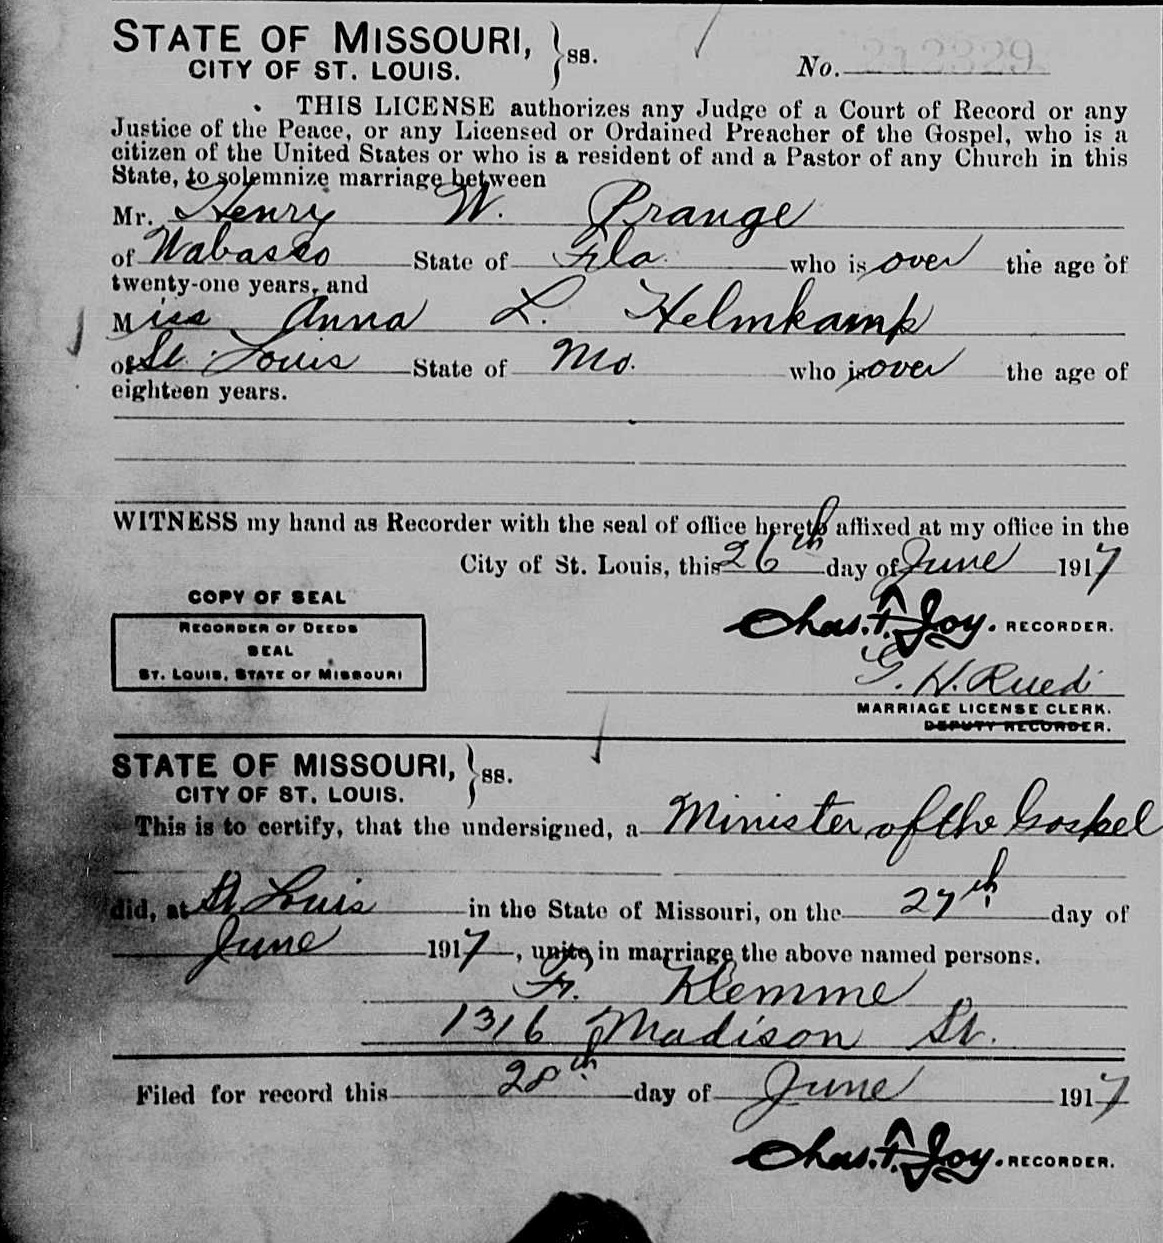 STATE OF MISSOURI, } ss.
CITY OF ST. LOUIS.
No. 212329
THIS LICENSE authorizes any Judge of a Court of Record or any
Justice of the Peace, or any Licensed or Ordained Preacher of the Gospel, who is a
citizen of the United States or who is a resident of and a Pastor of any Church in this
State, to solemnize marriage between
Mr. Henry W. Prange
of Wabasso State of Fla. who is over the age of
twenty-one years, and
Miss Anna L. Helmkamp
of St. Louis State of Mo. who is over the age of
eighteen years.
WITNESS my hand as Recorder with the seal of office hereto affixed at my office in the
City of St. Louis, this 26th day of June 1917
COPY OF SEAL
RECORDER OF DEEDS
SEAL
ST. LOUIS, STATE OF MISSOURI
Chas. F. Joy. RECORDER.
G. H. Ruedi
MARRIAGE LICENSE CLERK.
DEPUTY RECORDER.
STATE OF MISSOURI, } ss.
CITY OF ST. LOUIS.
This is to certify, that the undersigned, a Minister of the Gospel
did, at St Louis in the State of Missouri, on the 27th day of
June 1917, unite in marriage the above named persons.
Fr. Klemme
1316 Madison St.
Filed for record this 28th day of June 1917
Chas. F. Joy. RECORDER.